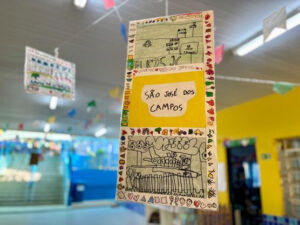 SÃO JOSÉ DOS
CAMPOS